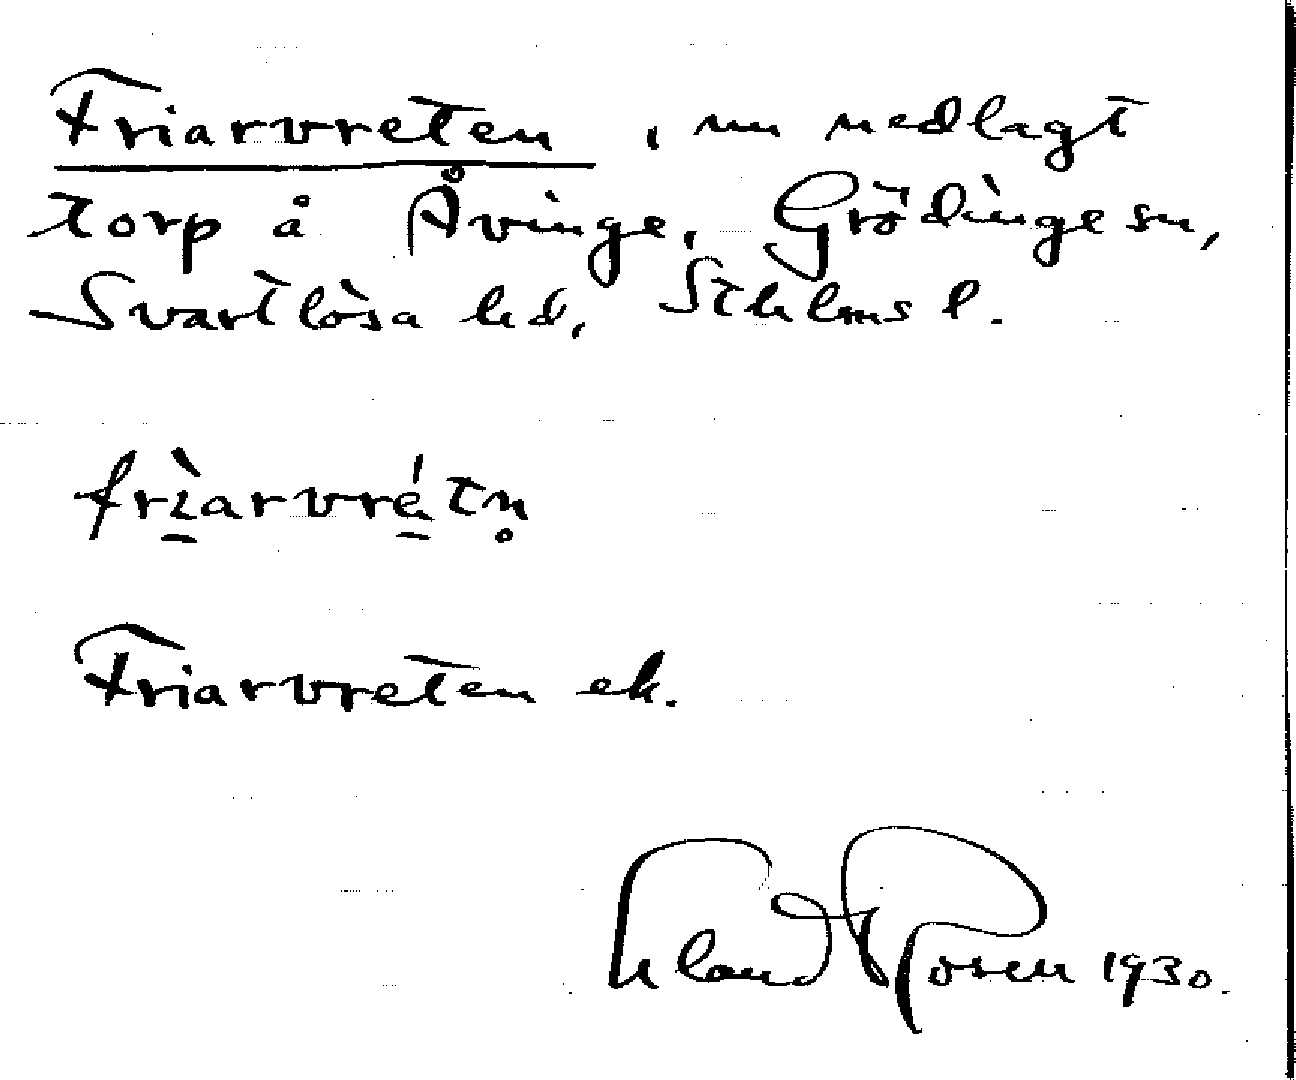 Friarvreten, nu nedlagt
torp å Åvinge, Grödinge sn,
Svartlösa hd, Sthlms l.
frìarvrétn̥
Friarvreten ek.
Rosen 1930.